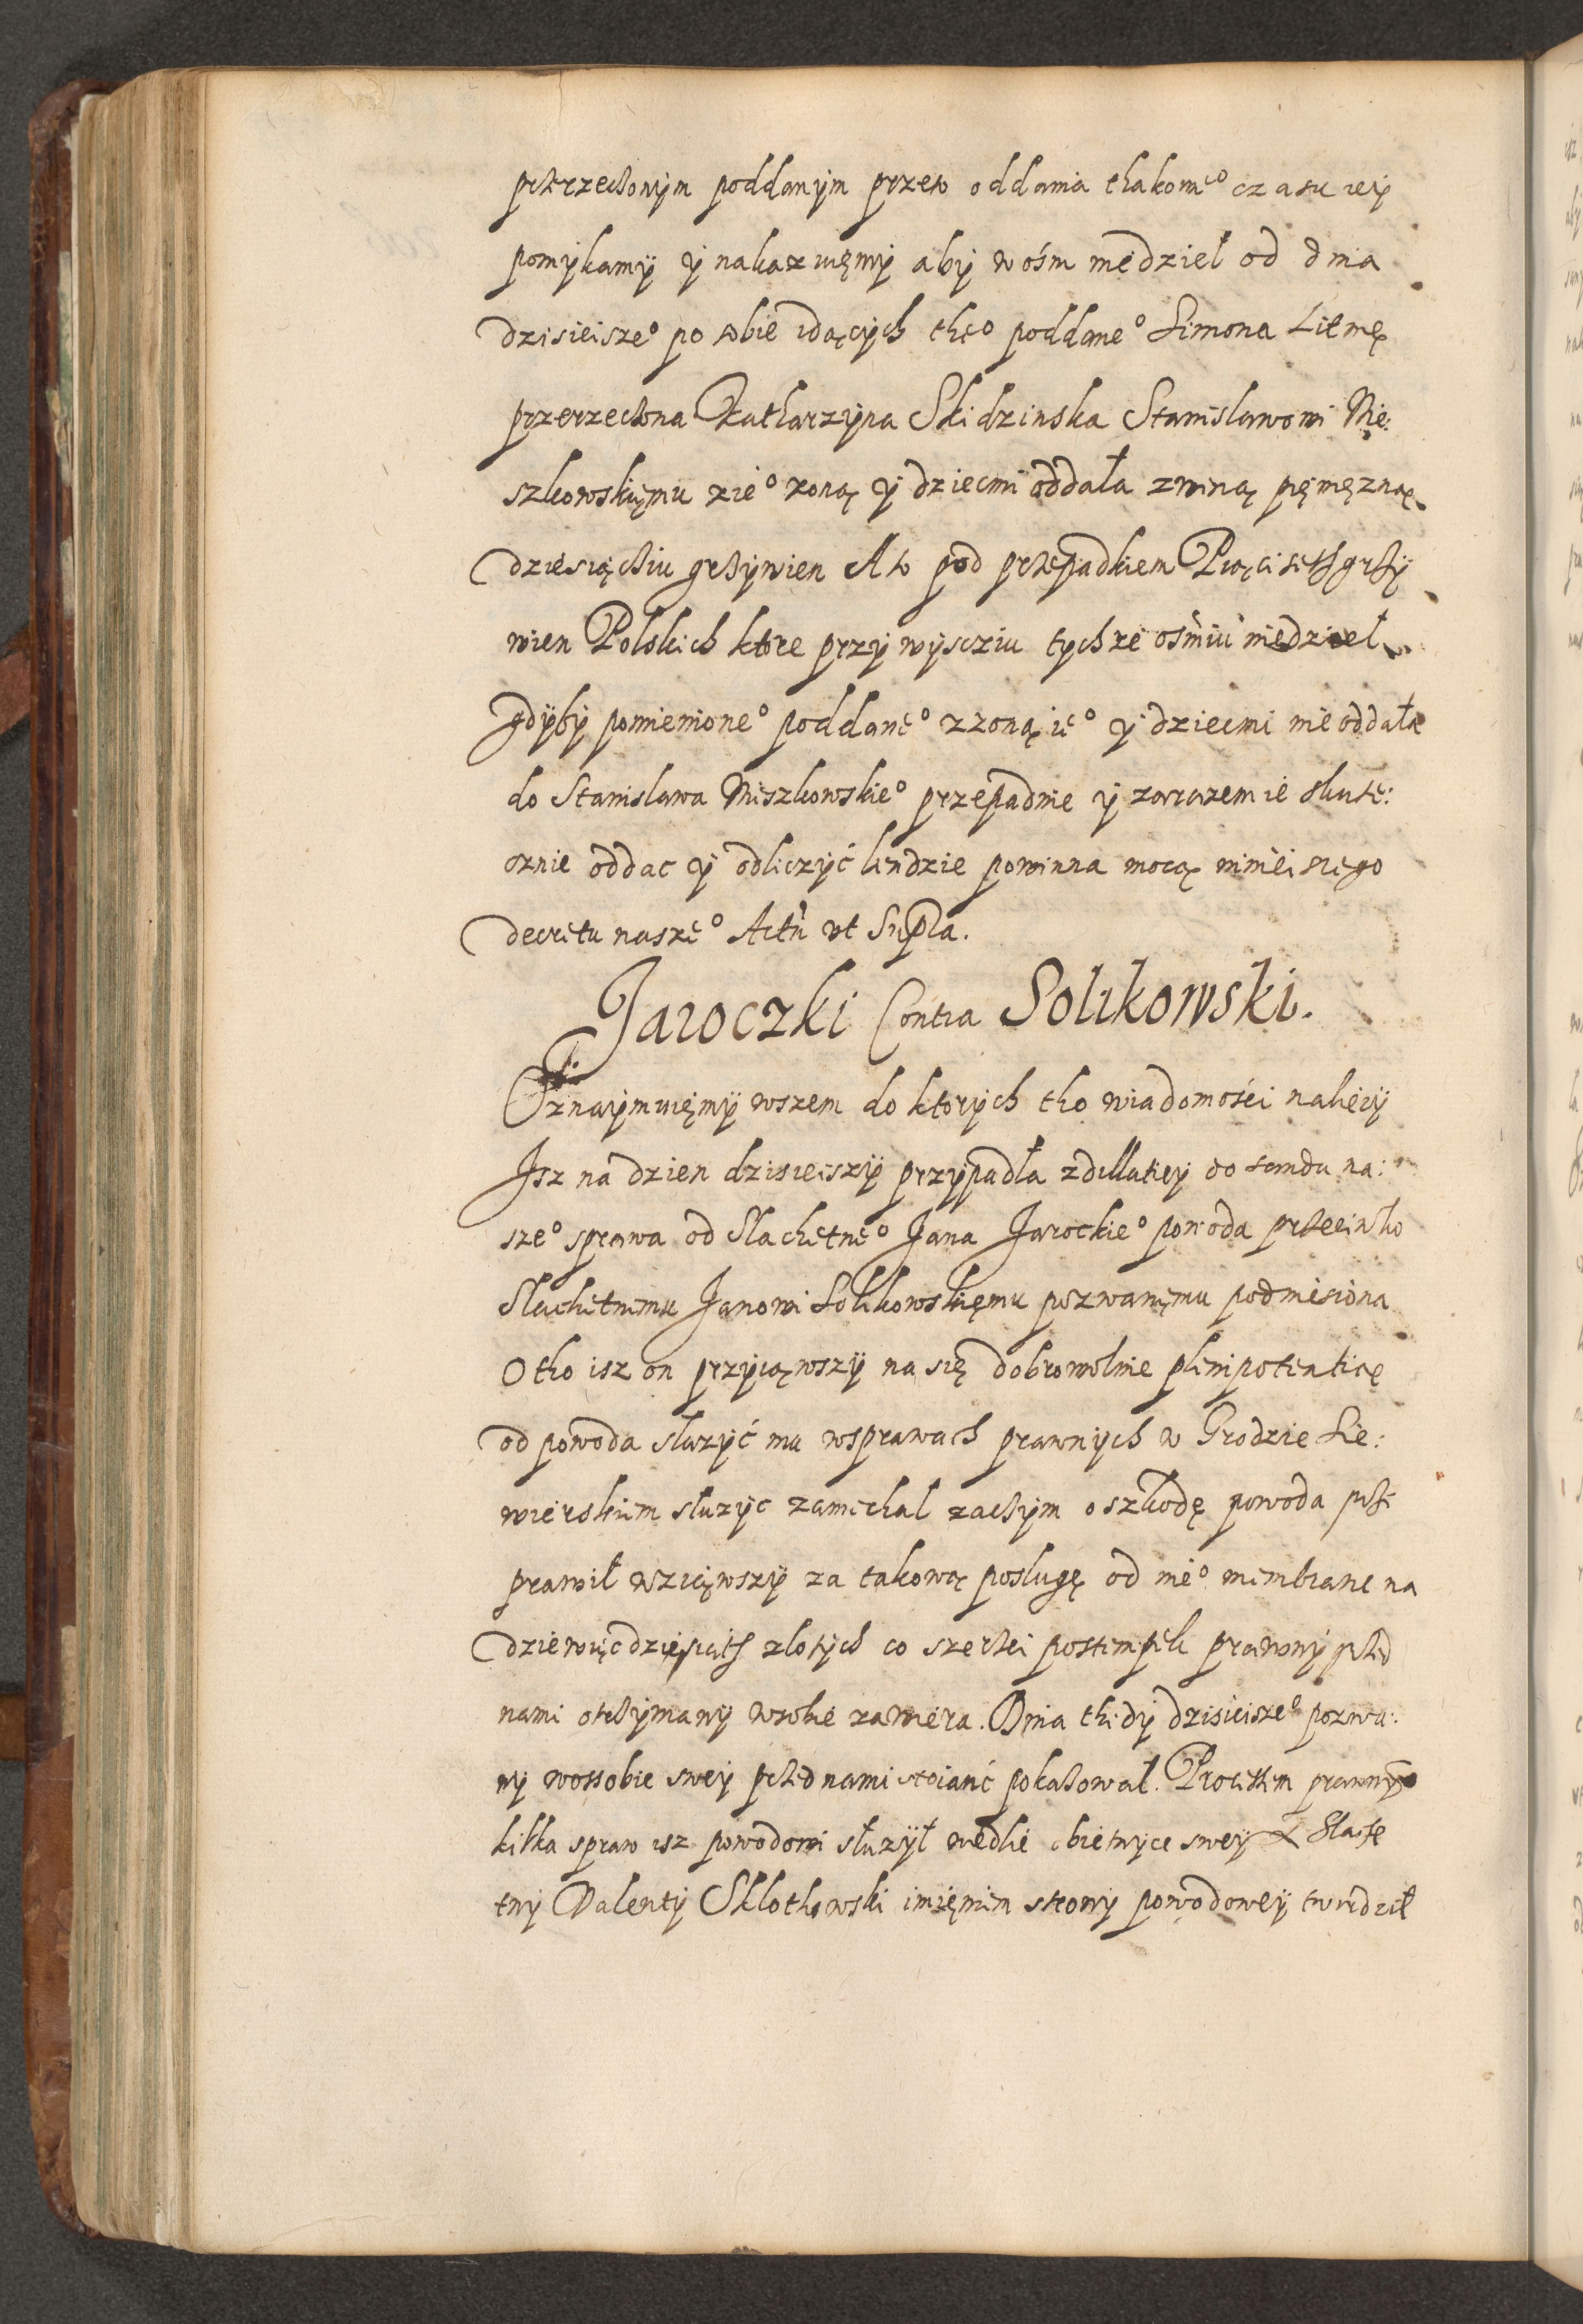 przerzeczonym poddanym przeto oddania thakome° czasu iey
pomykamy y nakazuięmy aby w ośm niedziel od dnia
dzisieisze° po sobie idących the° poddane° Simona Litmę
przerzeczona Katharzyna Skidzinska Stanislawowi Mie:
szkowskięmu z ie° zoną y dziecmi oddała z winą pięnięzną
dziesiąchiu grzywien A to pod przepadkiem Pięciseth grzy
wien Polskich ktore przy wyscziu tychze ośmiu niedziel
gdyby pomienione° poddane° z zoną ie° y dziecmi nie oddała
do Stanislawa Miszkowskie° przepadnie y zarazem ie skute:
cznie oddac y odliczyć bendzie powinna mocą ninieiszego
decretu nasze° Actu ut Supra.
Jaroczki Contra Solikowski.
Oznaymuięmy wszem do ktorych tho wiadomości nalezy
Jsz na dzien dzisieiszy przypadła z dillatiey do sendu na:
sze° sprawa od Slachetne° Jana Jarockie° powoda przeciwko
Slachetnemu Janowi Solikowskięmu pozwanęmu podniesiona
O tho isz on przyiąwszy na się dobrowolnie plenipotentię
od powoda sluzyć mu w sprawach prawnych w Grodzie Sie:
wierskiem sluzyc zaniechal zaczym o szkodę powoda przi
prawił wziąwszy za takową poslugę od nie° membrane na
dziewięcdziesiąth zlotych co szerzei postempek prawny przed
nami otrzymany w sobie zawiera. Dnia thedy dzisieisze° pozwa:
ny w ossobie swey przed nami stoianc pokazował. Processem prawnym
kilka spraw isz powodowi służył wedle obietnyce swey A Slache
tny Valenty Sklothowski imięniem strony powodowey twirdził